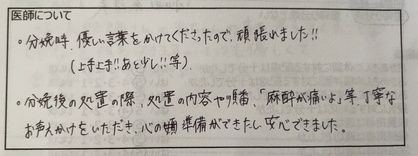 医師について
・分娩時、優しい言葉をかけてくださったので、頑張れました!!
(上手上手!!あと少し!!等)
・分娩後の処置の際、処置の内容や順番、「麻酔が痛いよ」等、丁寧な
お声かけをいただき、心の準備ができたし安心できました。